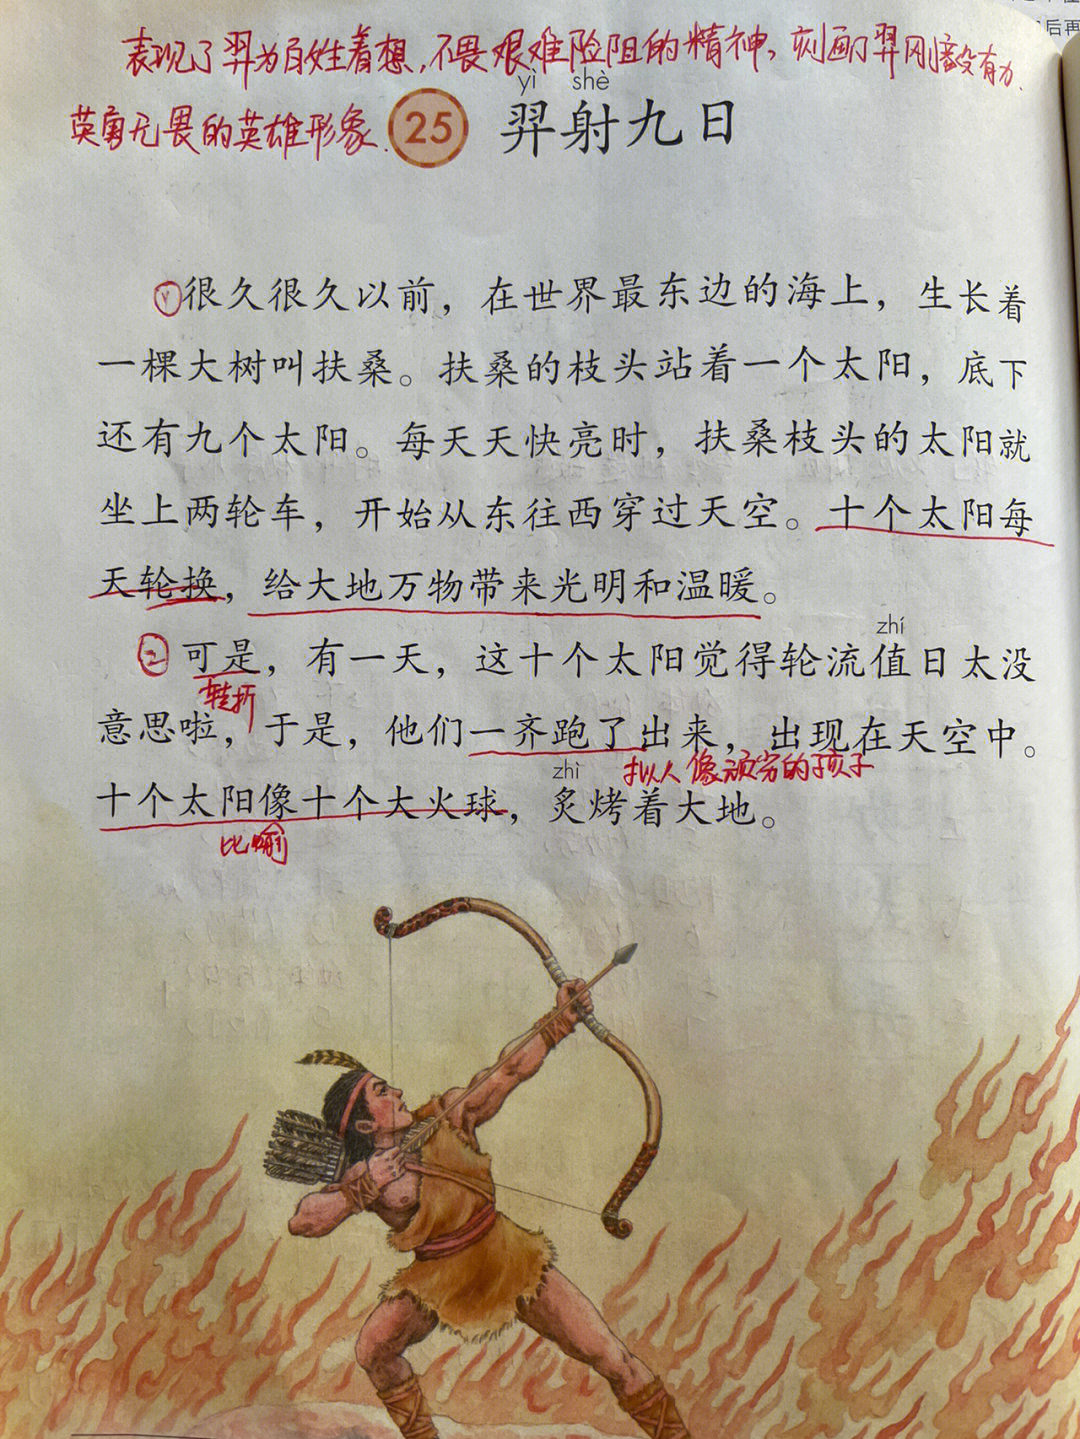 后再
表现了羿为百姓着想,不畏艰难险阻的精神,刻画了羿刚毅有力
英勇无畏的英雄形象.
yì shè
25 羿射九日
①很久很久以前，在世界最东边的海上，生长着
一棵大树叫扶桑。扶桑的枝头站着一个太阳，底下
还有九个太阳。每天天快亮时，扶桑枝头的太阳就
坐上两轮车，开始从东往西穿过天空。十个太阳每
天轮换，给大地万物带来光明和温暖。
zhí
②可是，有一天，这十个太阳觉得轮流值日太没
转折
意思啦，于是，他们一齐跑了出来，出现在天空中。
zhì
拟人 像顽劣的孩子
十个太阳像十个大火球，炙烤着大地。
比喻